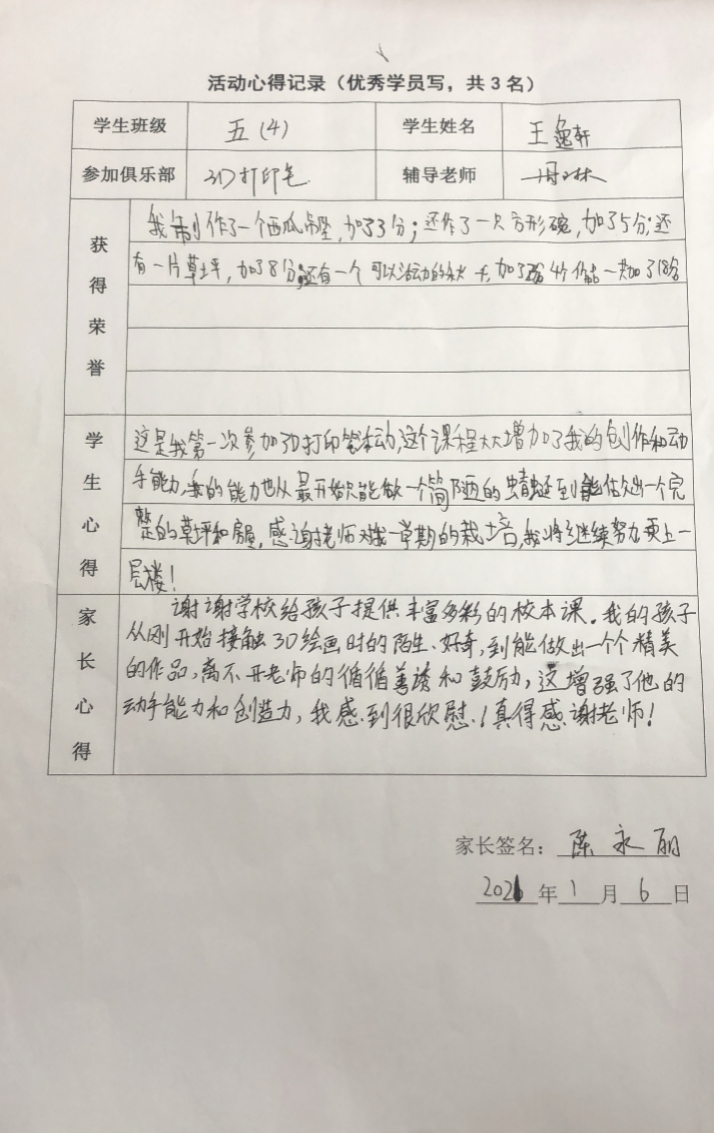 活动心得记录（优秀学员写，共3名）
学生班级 五(4) 学生姓名 王 轩
参加俱乐部 3D打印笔 辅导老师
获得荣誉
我制作了一个西瓜吊坠,加了3分;还作了一只方形碗,加了5分;还
有一片草坪,加了8分;还有一个可以活动的 ,加了 一共加了18分
学生心得
这是我第一次参加3D打印笔活动,这个课程大大增加了我的创作和动
手能力,我的能力也从最开始只能做一个简陋的蜻蜓到能做出一个完
整的草坪和房屋,感谢老师对我一学期的栽培,我将继续努力更上一
层楼!
家长心得
谢谢学校给孩子提供丰富多彩的校本课.我的孩子
从刚开始接触3D绘画时的陌生、好奇,到能做出一个个精美
的作品,离不开老师的循循善诱和鼓励,这增强了他的
动手能力和创造力,我感到很欣慰!真得感谢老师!
家长签名：陈永丽
2021年1月6日